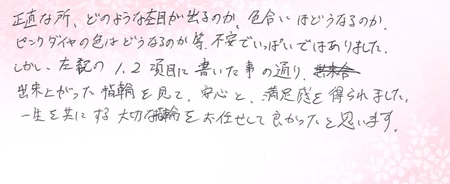 正直な所、どのような杢目が出るのか、色合いはどうなるのか、
ピンクダイヤの色はどうなるのか等、不安でいっぱいではありました。
しかし、左記の1、2項目に書いた事の通り、
出来上がった指輪を見て、安心と、満足感を得られました。
一生を共にする大切な指輪をお任せして良かったと思います。